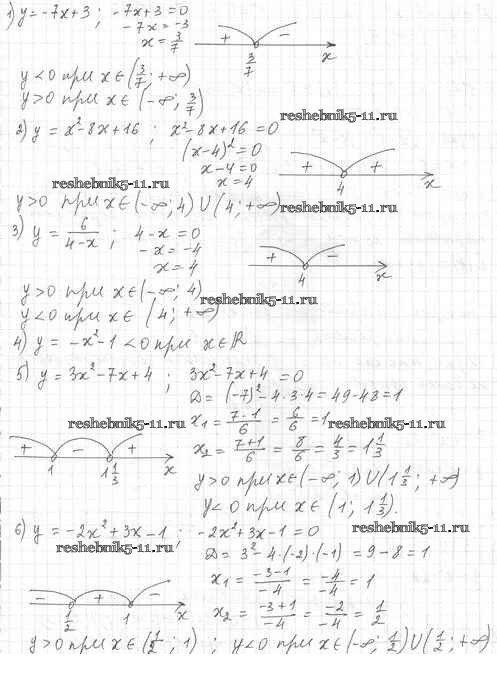 1) y = -7x+3 ; -7x+3=0
-7x=-3
x = 3/7
+ -
3/7 x
y<0 при x∈(3/7; +∞)
y>0 при x∈(-∞; 3/7)
reshebnik5-11.ru
2) y = x²-8x+16 ; x²-8x+16=0
(x-4)²=0
x-4=0
x=4
+ +
4 x
reshebnik5-11.ru
y>0 при x∈(-∞;4)U(4;+∞)
reshebnik5-11.ru
3) y = 6/(4-x) ; 4-x=0
-x=-4
x=4
+ -
4 x
y>0 при x∈(-∞;4)
reshebnik5-11.ru
y<0 при x∈(4;+∞)
4) y = -x²-1 <0 при x∈R
5) y = 3x²-7x+4 ; 3x²-7x+4 =0
D= (-7)²-4·3·4=49-48=1
reshebnik5-11.ru
x₁ = (7-1)/6 = 6/6 = 1
reshebnik5-11.ru
x₂ = (7+1)/6 = 8/6 = 4/3 = 1 1/3
+ - +
1 1 1/3 x
y>0 при x∈(-∞; 1)U(1 1/3; +∞)
y<0 при x∈(1; 1 1/3).
6) y = -2x²+3x-1 ; -2x²+3x-1=0
reshebnik5-11.ru
reshebnik5-11.ru
D= 3²-4·(-2)·(-1) =9-8=1
x₁ = (-3-1)/-4 = -4/-4 = 1
x₂ = (-3+1)/-4 = -2/-4 = 1/2
- + -
1/2 1 x
y>0 при x∈(1/2; 1) ; y<0 при x∈(-∞; 1/2)U(1/2; +∞)